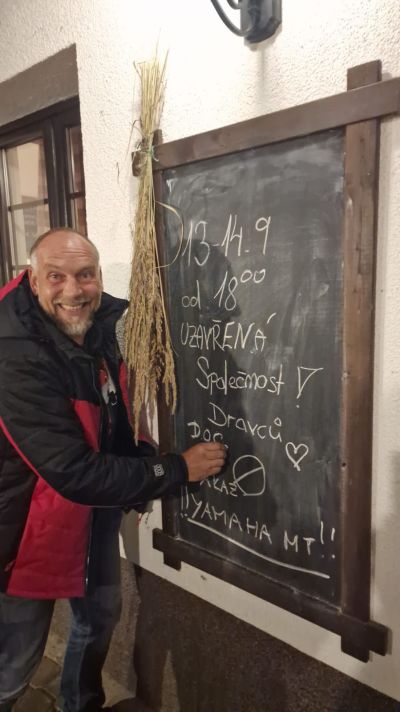 13-14.9
od 18⁰⁰
UZAVŘENÁ
Společnost!
Dravců
ZÁKAZ
!!YAMAHA MT!!